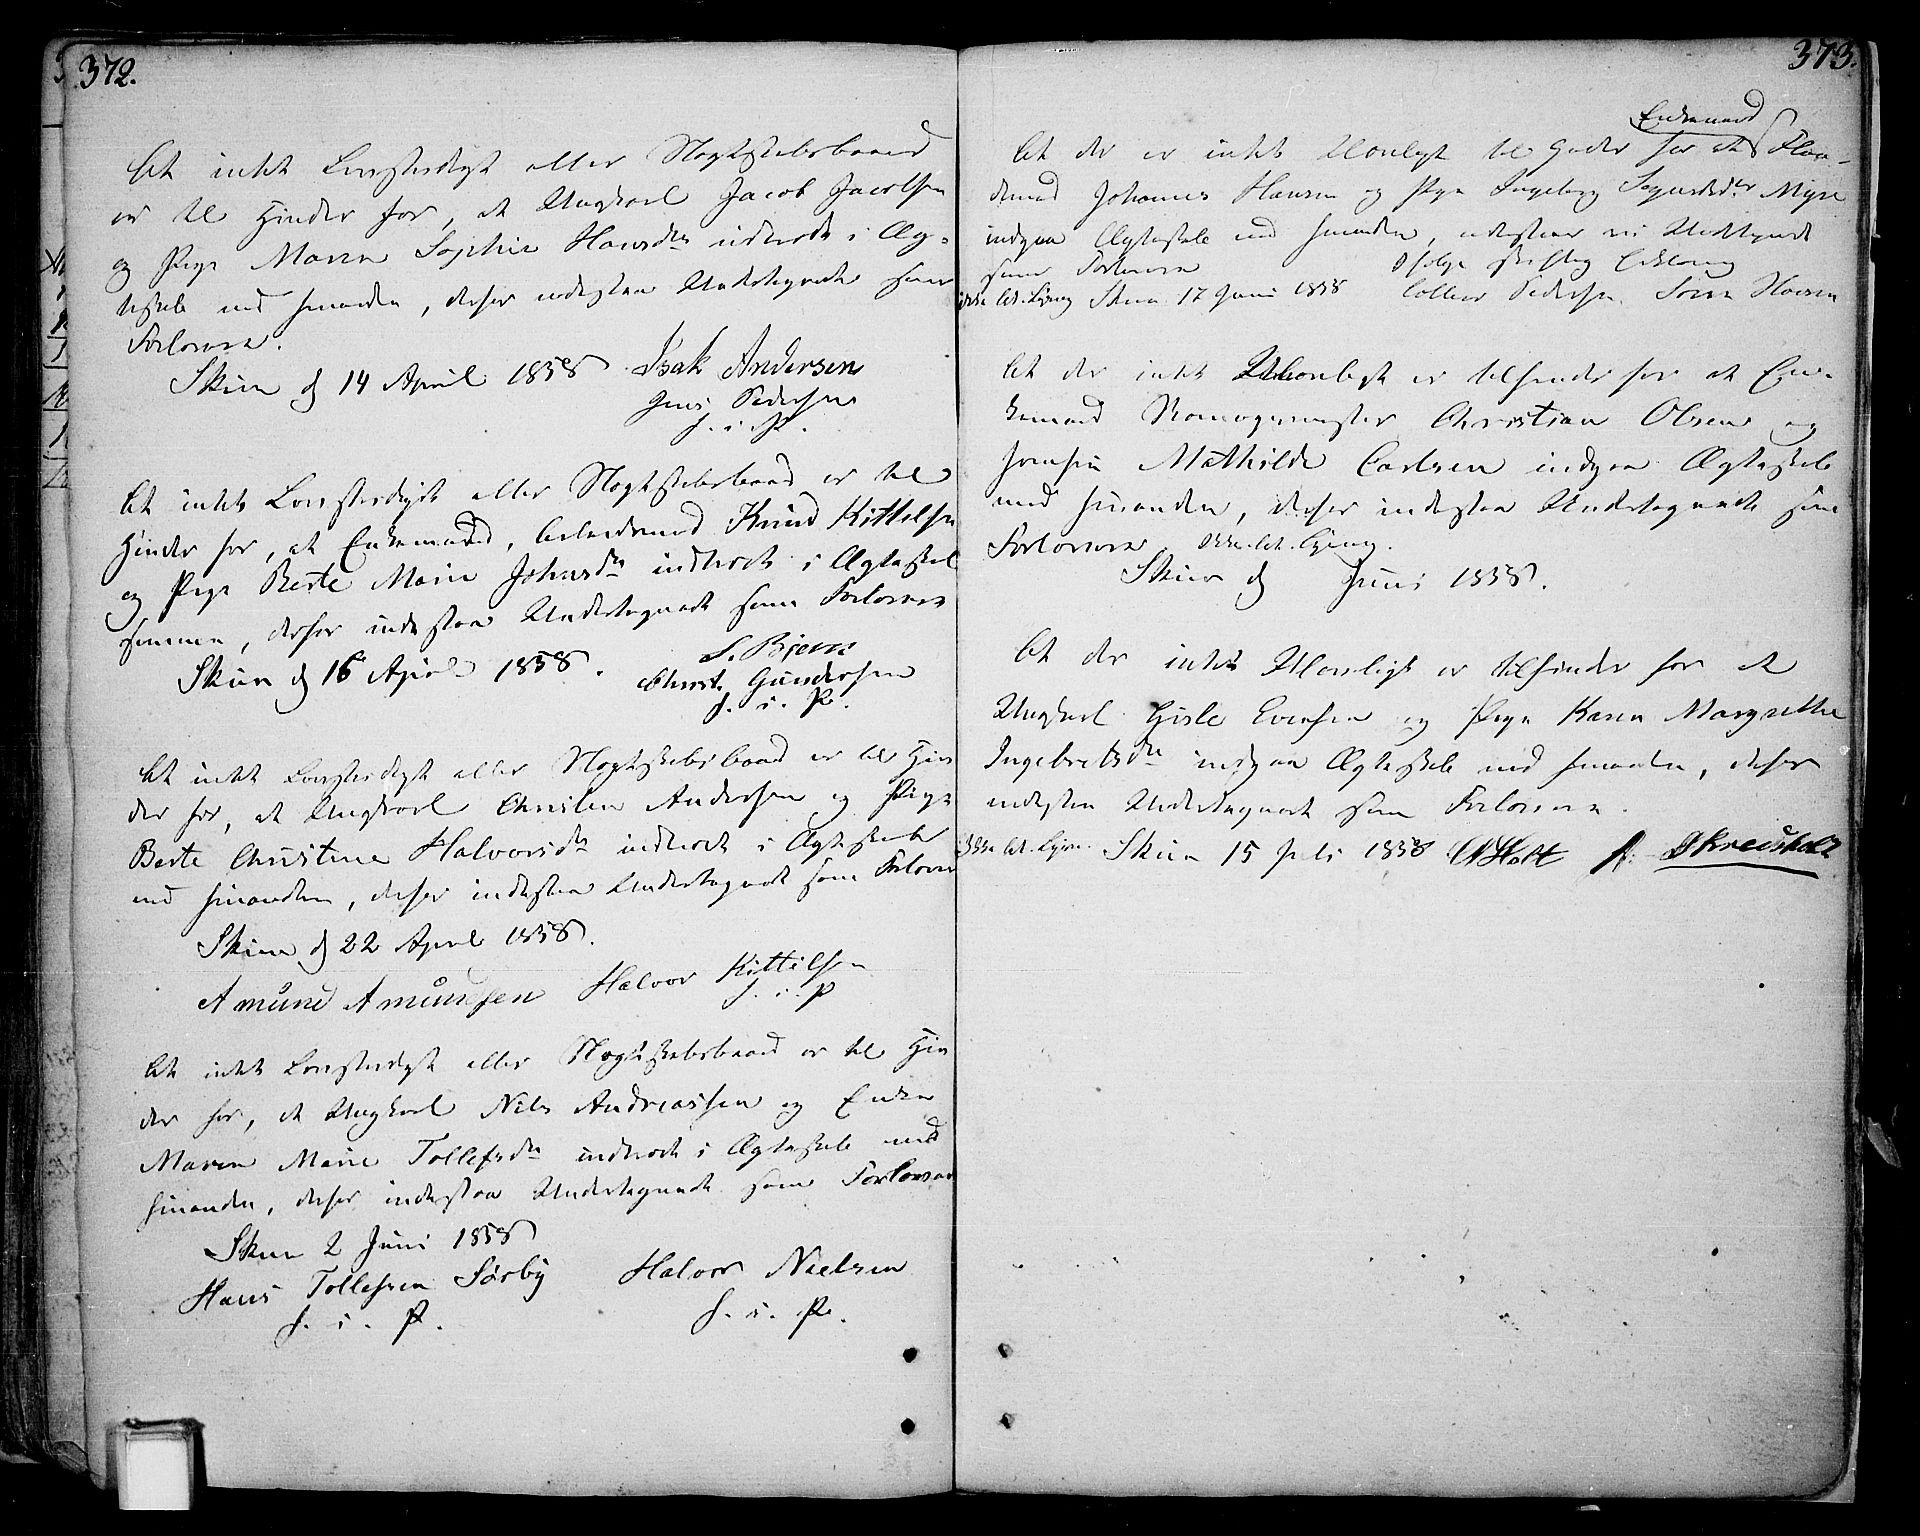 372.
At intet Lovstridigt eller Slægtskabsbaand
er til Hinder for, at Ungkarl Jacob Jacobsen
og Pige Maren Sophie Hansdtr indtræde i Æg-
teskab med hinanden, derfor indestaa Undertegnede som
Forlovere.
Skien d 14 April 1858 Isak Andersen
Jens Pedersen
h. i. P.
At intet Lovstridigt eller Slægtskabsbaand er til
Hinder for, at Enkemand, Arbeidsmand Knud Kittelsen
og Pige Berte Marie Johnsdtr indtræde i Ægteskab
sammen, derfor indestaa Undertegnede som Forlovere
Skien d 16 April 1858. S. Bjerre
Christ. Gundersen
h. i. P.
At intet Lovstridigt eller Slægtskabsbaand er til Hin
der for, at Ungkarl Christen Andersen og Pige
Berte Christine Halvorsdtr indtræde i Ægteskab
med hinanden, derfor indestaa Undertegnede som Forlovere
Skien d 22 April 1858.
Amund Amundsen Halvor Kittilsen
h. i. P
At intet Lovstridigt eller Slægtskabsbaand er til Hin
der for, at Ungkarl Nils Andreassen og Enke
Maren Marie Tollefsdtr indtræde i Ægteskab med
hinanden, derfor indestaa Undertegnede som Forlovere
Skien 2 Juni 1858
Hans Tollefsen Sørby Halvor Nielsen
h. i. P. h. i. P.
373.
Enkemand
At der er intet Ulovligt til Hinder for at
Johannes Hansen og Pige Ingeborg Sigurdsdtr Myre
indgaa Ægteskab med hinanden, indestaar vi Undertegnede
som Forlovere Ifølge skriftlig Erklæring
Skien 17 Juni 1858 Pedersen. Søren Hansen
At der intet Ulovligt er tilhinder for at En-
kemand Christian Olsen og
Jomfru Mathilde Carlsen indgaa Ægteskab
med hinanden, derfor indestaa Undertegnede som
Forlovere
Skien d Juni 1858.
At der intet Ulovligt er tilhinder for at
Ungkarl Gisle Evensen og Pige Karen Margrethe
Ingebretsdtr indgaa Ægteskab med hinanden, derfor
indestaa Undertegnede som Forlovere.
Skien 15 Juli 1858 Holt A. Skreisholt